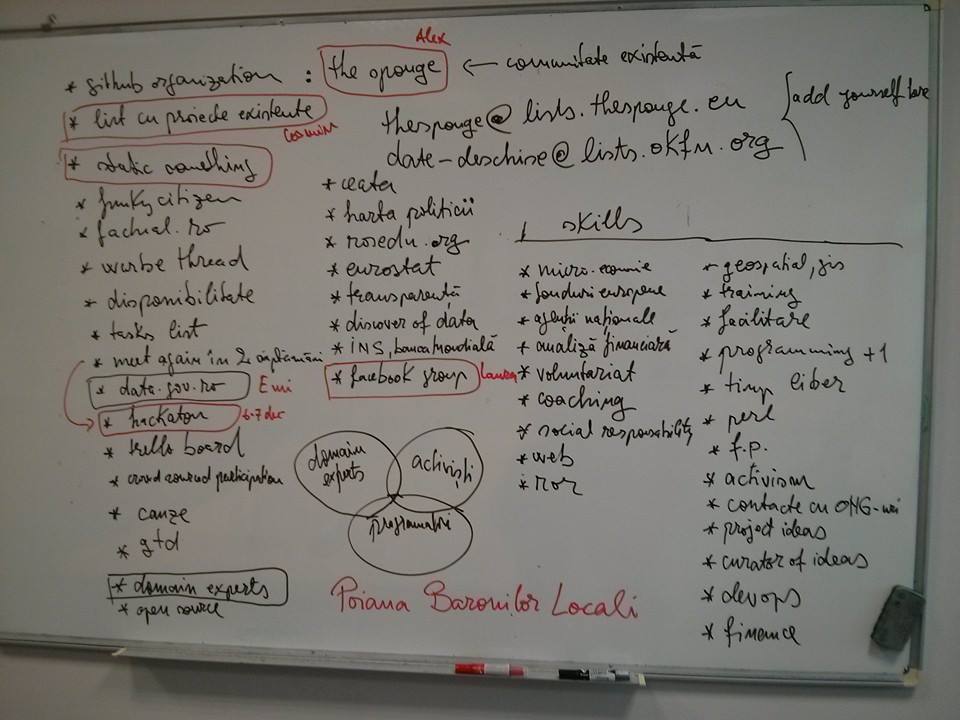 Alex
* github organization : the sponge ← comunitate existentă
* list cu proiecte existente
Cosmin
thesponge@lists.thesponge.eu
date-deschise@lists.okfn.org
add yourself here
* static something
* funky citizen
* factual.ro
* thread
* disponibilitate
* tasks list
* meet again în 2 săptămâni
* data.gov.ro
Emi
* hackaton
6-7 dec
* trello board
* crowd participation
* cauze
* gtd
* domain experts
* open source
* ceata
* harta politicii
* rosedu.org
* eurostat
* transparență
* discover of data
* INS, banca mondială
* facebook group
domain
experts
activiști
programatori
Poiana Baronilor Locali
skills
* micro-economie
* fonduri europene
* agenții naționale
* analiză financiară
* voluntariat
* coaching
* social responsability
* web
* ror
* geospatial, gis
* training
* facilitare
* programming +1
* timp liber
* perl
* f.p.
* activism
* contacte cu ONG-uri
* project ideas
* curator of ideas
* devops
* finance